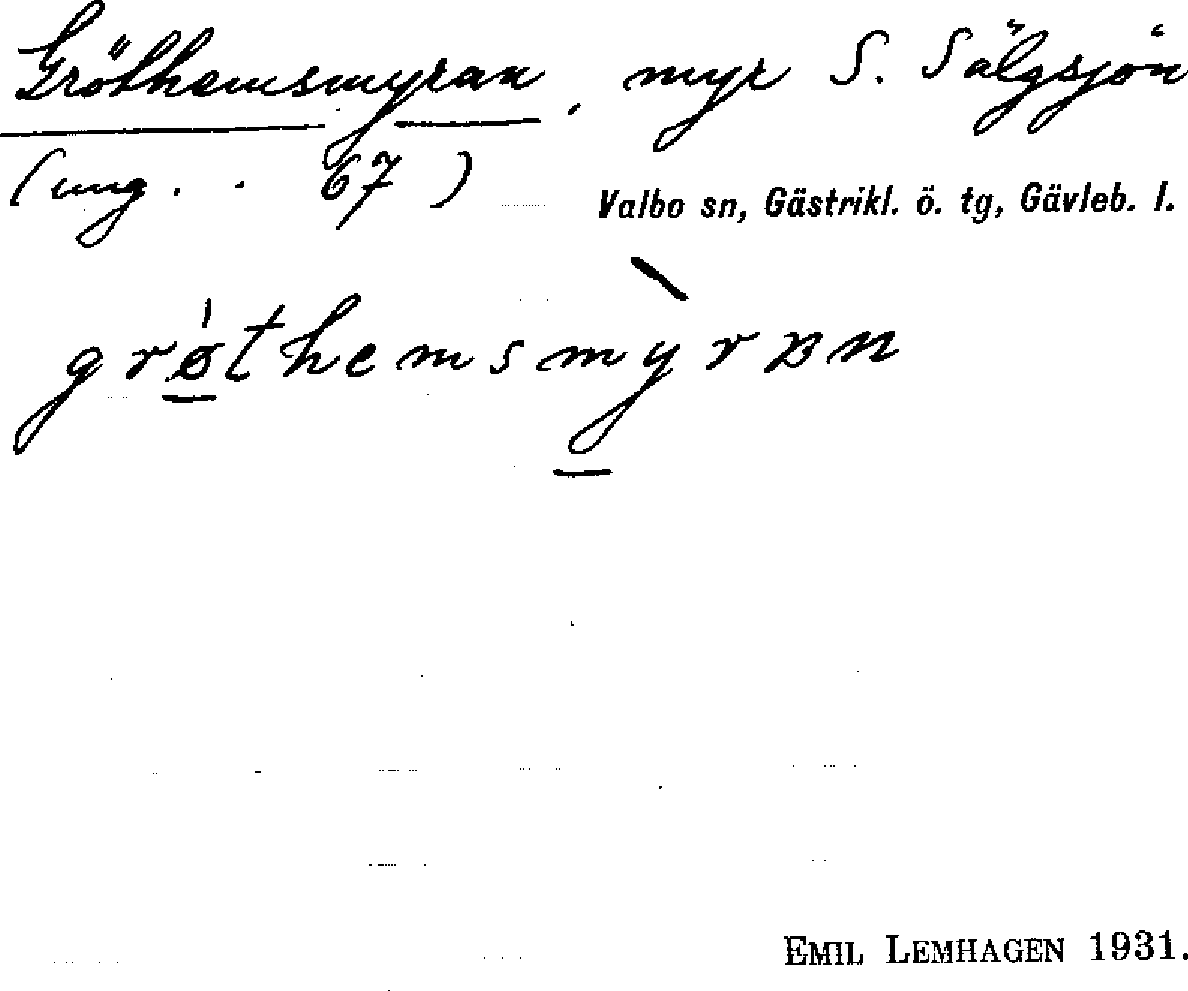 Gröthemsmyran, myr S. Sälgsjön
(ung. . 67)
Valbo sn, Gästrikl. ö. tg, Gävleb. l.
grøthemsmỳrɒn
EMIL LEMHAGEN 1931.